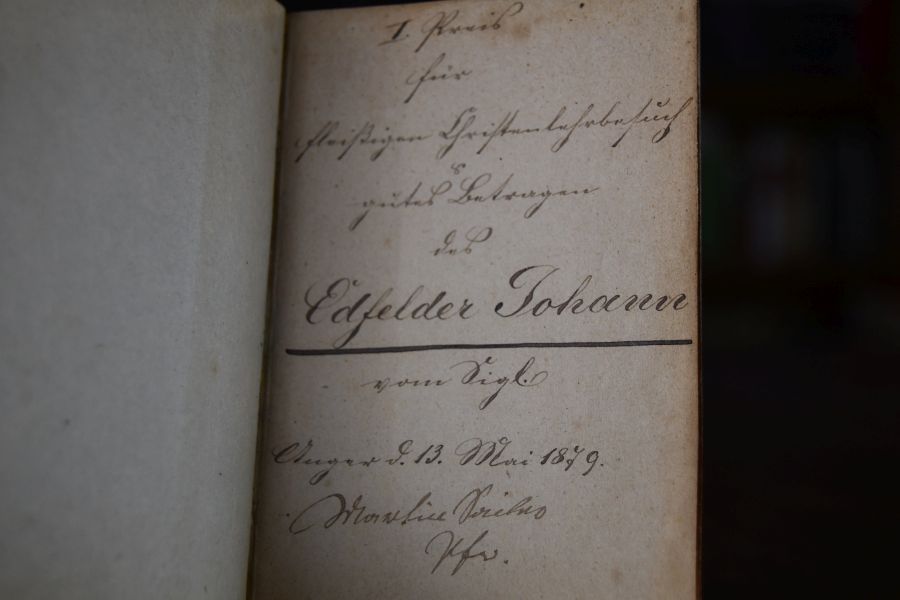 I. Preis
für
fleißigen Christenlehrbesuch
&
gutes Betragen
des
Edfelder Johann
vom Sigl.
Anger d. 13. Mai 1879.
Martin
Pfr.